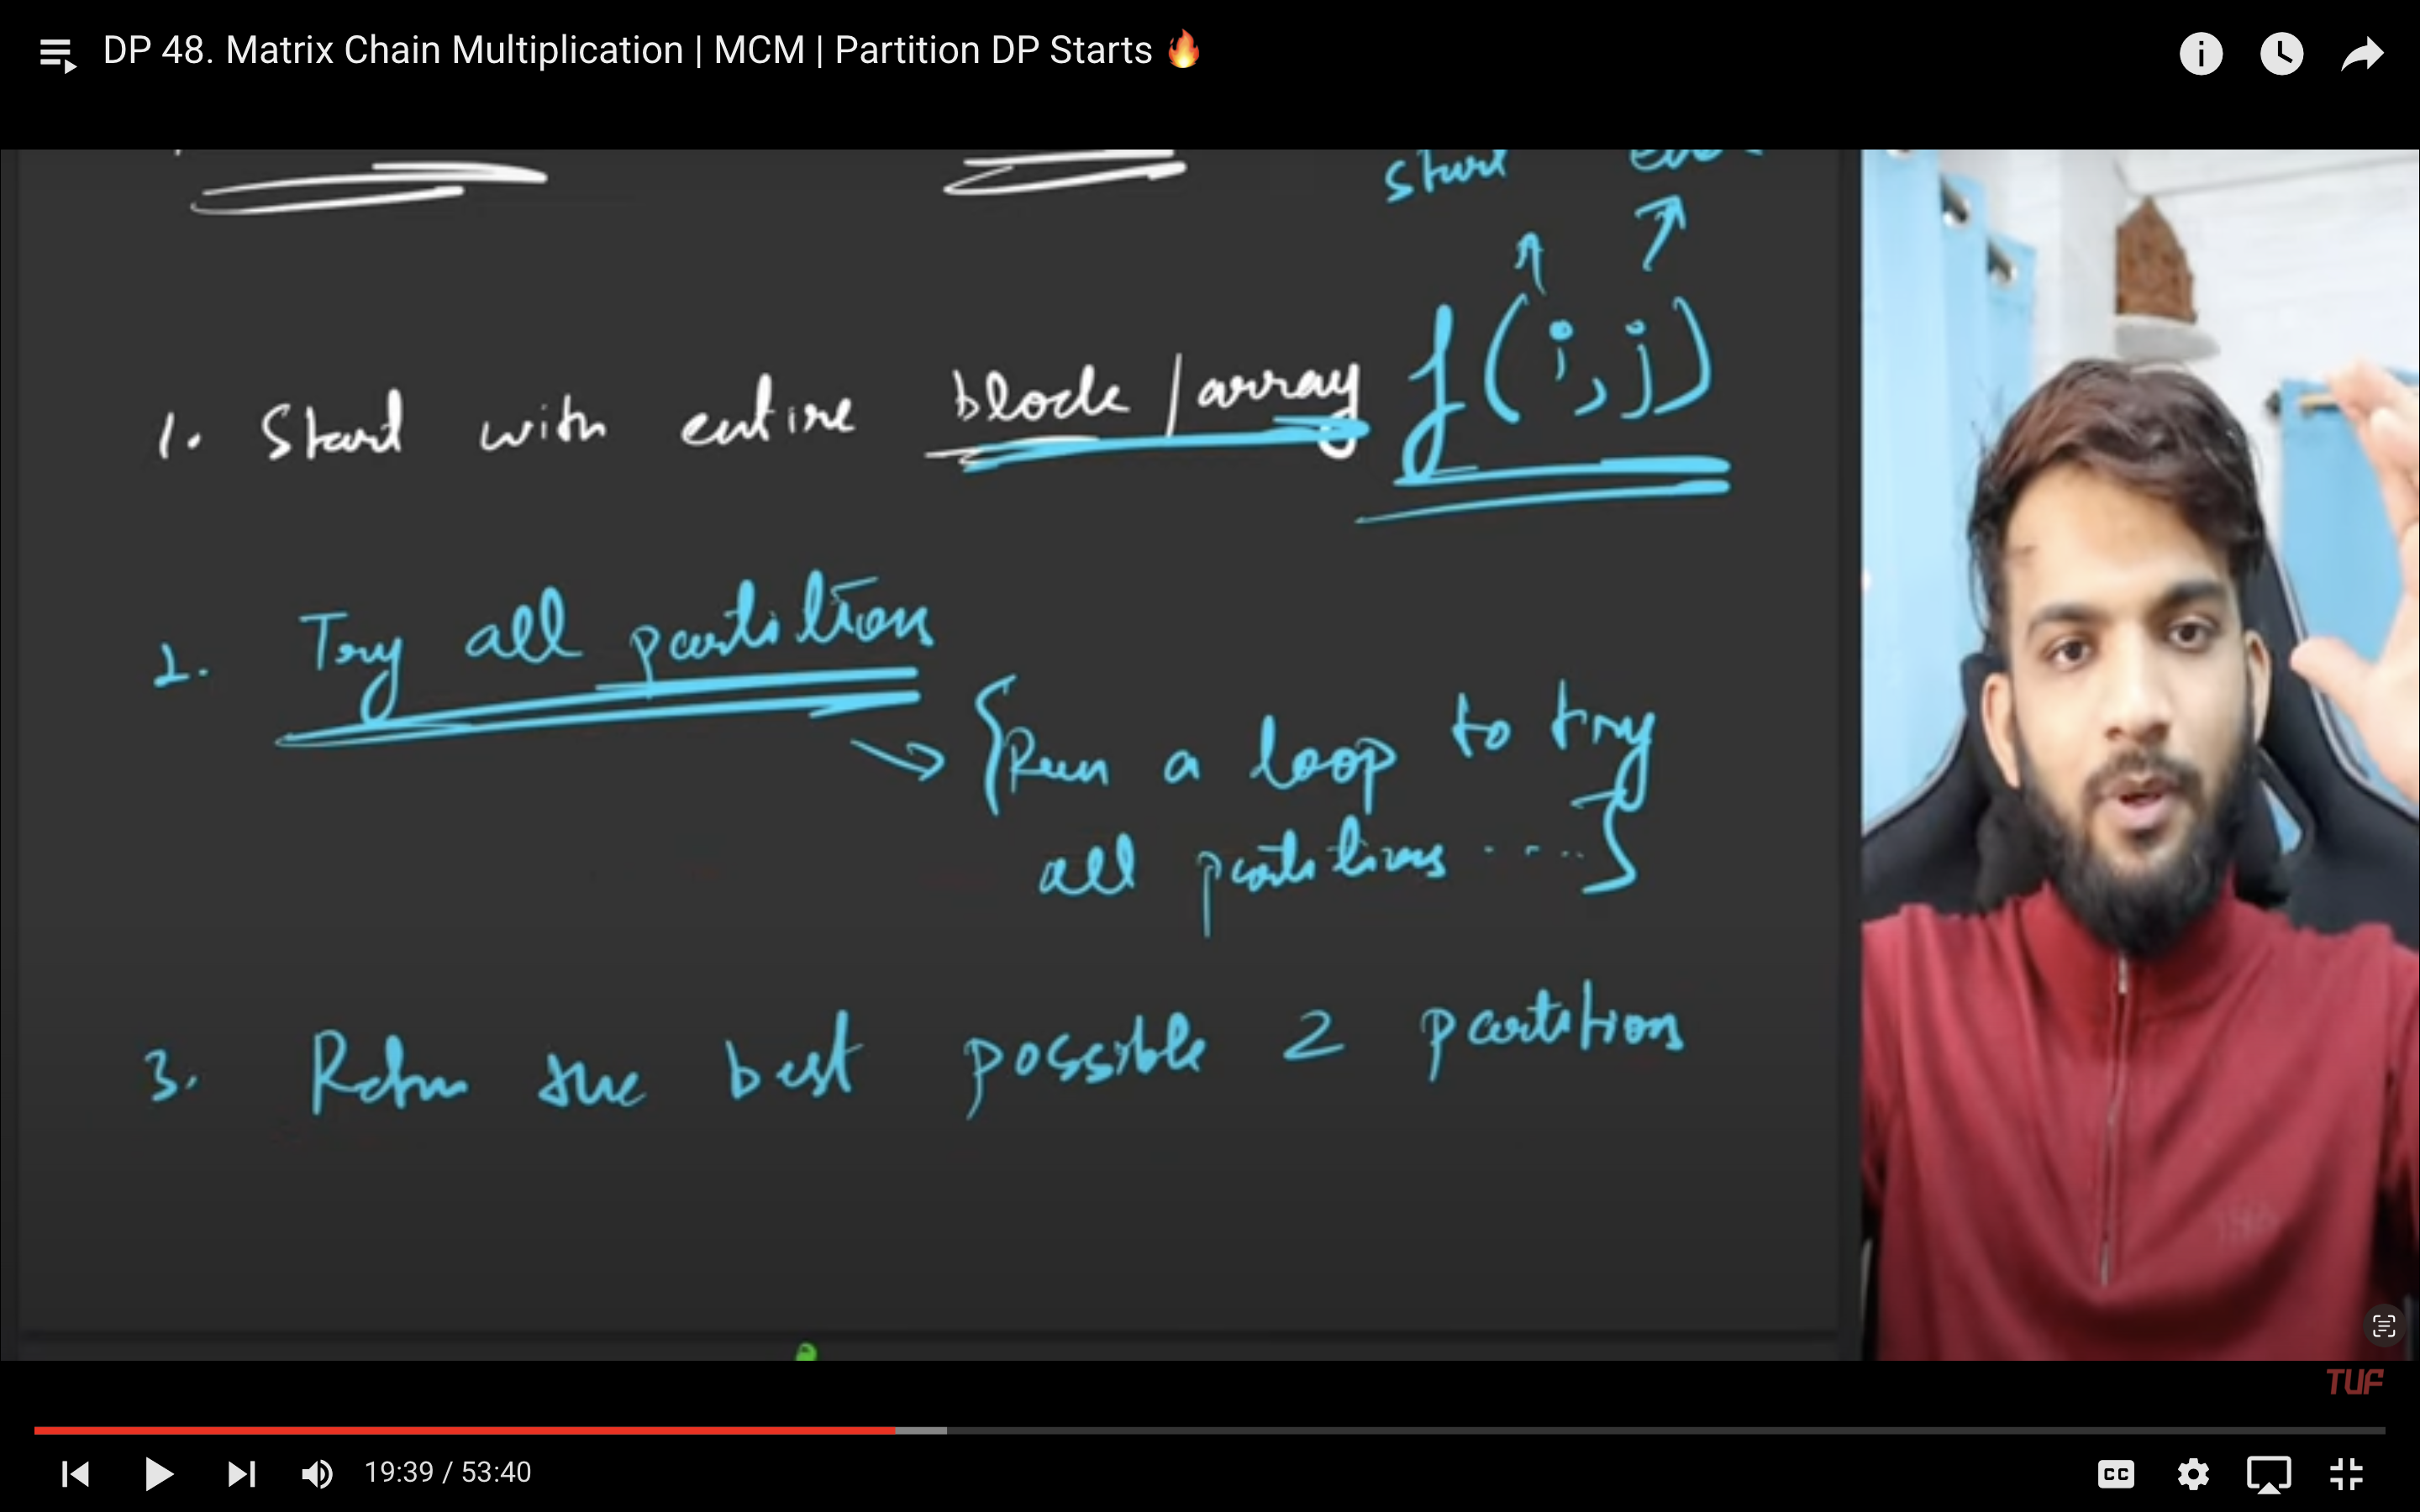 DP 48. Matrix Chain Multiplication | MCM | Partition DP Starts 🔥
start end
f(i,j)
1. Start with entire block/array
2. Try all partition
→ {Run a loop to try
all partitions ....}
3. Return the best possible 2 partition
TUF
19:39 / 53:40
CC